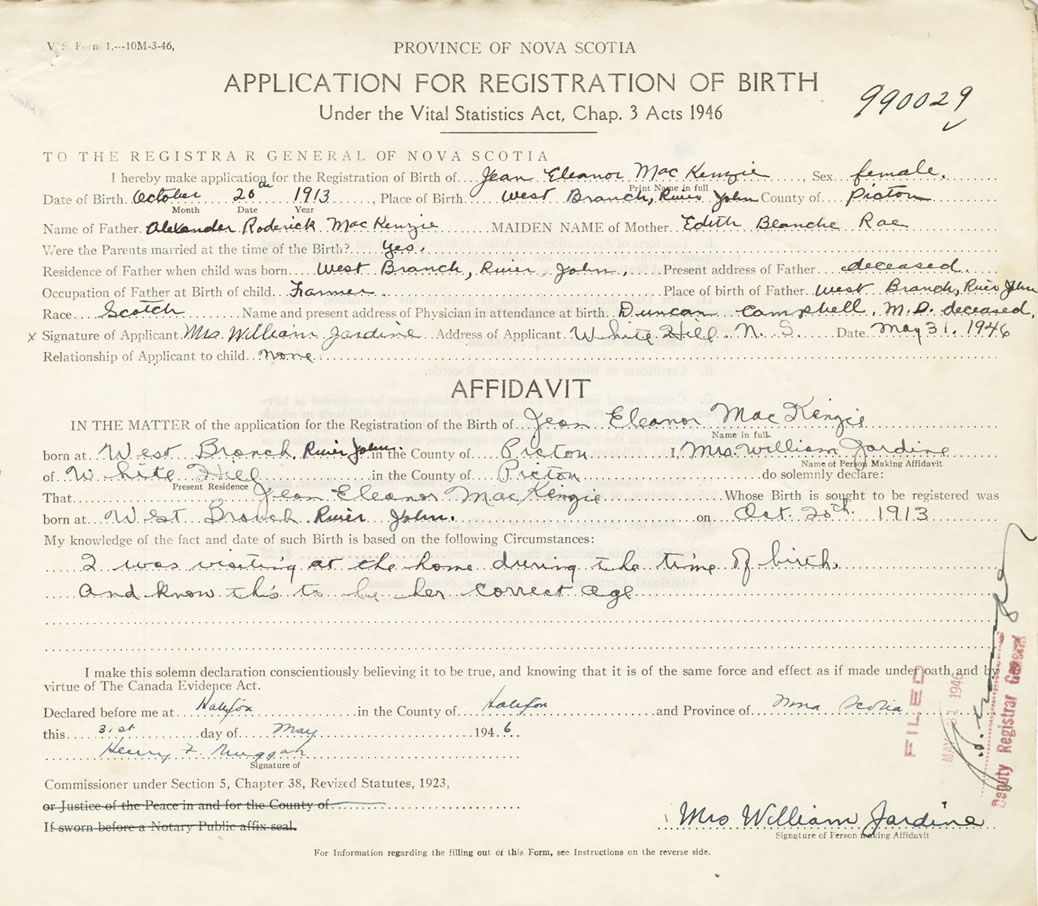 V. S. Form 1.---10M-3-46,
PROVINCE OF NOVA SCOTIA
APPLICATION FOR REGISTRATION OF BIRTH
990029
Under the Vital Statistics Act, Chap. 3 Acts 1946
TO THE REGISTRAR GENERAL OF NOVA SCOTIA
I hereby make application for the Registration of Birth of Jean Eleanor MacKenzie, Sex female.
Print Name in full
Date of Birth October 20th 1913, Place of Birth West Branch, River John County of Pictou
Month Date Year
Name of Father Alexander Roderick MacKenzie MAIDEN NAME of Mother Edith Blanche Rae
Were the Parents married at the time of the Birth? Yes.
Residence of Father when child was born West Branch, River John, Present address of Father deceased.
Occupation of Father at Birth of child. Farmer. Place of birth of Father West Branch, River John
Race Scotch Name and present address of Physician in attendance at birth. Duncan Campbell, M.D. deceased,
x Signature of Applicant Mrs. William Jardine Address of Applicant White Hill N. S. Date May 31. 1946
Relationship of Applicant to child. none
AFFIDAVIT
IN THE MATTER of the application for the Registration of the Birth of Jean Eleanor MacKenzie
Name in full
born at West Branch, River John, in the County of Pictou I, Mrs. William Jardine
Name of Person Making Affidavit
of White Hill in the County of Pictou do solemnly declare:
Present Residence
That Jean Eleanor MacKenzie Whose Birth is sought to be registered was
born at West Branch River John. on Oct. 20th 1913
My knowledge of the fact and date of such Birth is based on the following Circumstances:
I was visiting at the home during the time of birth.
And know this to be her correct age
I make this solemn declaration conscientiously believing it to be true, and knowing that it is of the same force and effect as if made under oath, and by
virtue of The Canada Evidence Act.
Declared before me at Halifax in the County of Halifax and Province of Nova Scotia
this 31st day of May 1946
Henry F.
Signature of
Commissioner under Section 5, Chapter 38, Revised Statutes, 1923,
or Justice of the Peace in and for the County of
If sworn before a Notary Public affix seal.
Mrs William Jardine
Signature of Person making Affidavit
For Information regarding the filling out of this Form, see Instructions on the reverse side.
FILED
MAY 31 1946
Deputy Registrar General